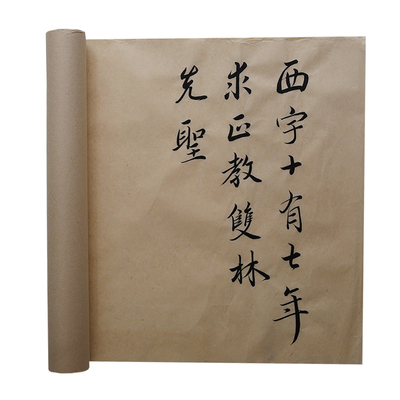 西字十有七年
求正教雙林
先聖